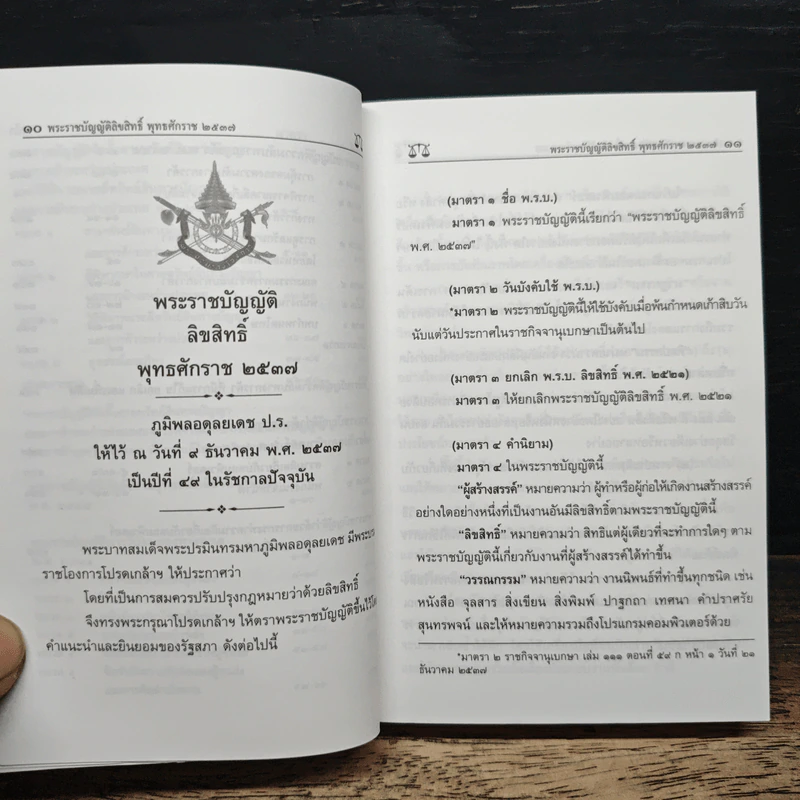 ๑๐ พระราชบัญญัติลิขสิทธิ์ พุทธศักราช ๒๕๓๗
พระราชบัญญัติ
ลิขสิทธิ์
พุทธศักราช ๒๕๓๗
ภูมิพลอดุลยเดช ป.ร.
ให้ไว้ ณ วันที่ ๙ ธันวาคม พ.ศ. ๒๕๓๗
เป็นปีที่ ๔๙ ในรัชกาลปัจจุบัน
พระบาทสมเด็จพระปรมินทรมหาภูมิพลอดุลยเดช มีพระบรม
ราชโองการโปรดเกล้าฯ ให้ประกาศว่า
โดยที่เป็นการสมควรปรับปรุงกฎหมายว่าด้วยลิขสิทธิ์
จึงทรงพระกรุณาโปรดเกล้าฯ ให้ตราพระราชบัญญัติขึ้นไว้
คำแนะนำและยินยอมของรัฐสภา ดังต่อไปนี้
พระราชบัญญัติลิขสิทธิ์ พุทธศักราช ๒๕๓๗ ๑๑
(มาตรา ๑ ชื่อ พ.ร.บ.)
มาตรา ๑ พระราชบัญญัตินี้เรียกว่า “พระราชบัญญัติลิขสิทธิ์
พ.ศ. ๒๕๓๗”
(มาตรา ๒ วันบังคับใช้ พ.ร.บ.)
*มาตรา ๒ พระราชบัญญัตินี้ให้ใช้บังคับเมื่อพ้นกำหนดเก้าสิบวัน
นับแต่วันประกาศในราชกิจจานุเบกษาเป็นต้นไป
(มาตรา ๓ ยกเลิก พ.ร.บ. ลิขสิทธิ์ พ.ศ. ๒๕๒๑)
มาตรา ๓ ให้ยกเลิกพระราชบัญญัติลิขสิทธิ์ พ.ศ. ๒๕๒๑
(มาตรา ๔ คำนิยาม)
มาตรา ๔ ในพระราชบัญญัตินี้
“ผู้สร้างสรรค์” หมายความว่า ผู้ทำหรือผู้ก่อให้เกิดงานสร้างสรรค์
อย่างใดอย่างหนึ่งที่เป็นงานอันมีลิขสิทธิ์ตามพระราชบัญญัตินี้
“ลิขสิทธิ์” หมายความว่า สิทธิแต่ผู้เดียวที่จะทำการใดๆ ตาม
พระราชบัญญัตินี้เกี่ยวกับงานที่ผู้สร้างสรรค์ได้ทำขึ้น
“วรรณกรรม” หมายความว่า งานนิพนธ์ที่ทำขึ้นทุกชนิด เช่น
หนังสือ จุลสาร สิ่งเขียน สิ่งพิมพ์ ปาฐกถา เทศนา คำปราศรัย
สุนทรพจน์ และให้หมายความรวมถึงโปรแกรมคอมพิวเตอร์ด้วย
*มาตรา ๒ ราชกิจจานุเบกษา เล่ม ๑๑๑ ตอนที่ ๕๙ ก หน้า ๑ วันที่ ๒๑
ธันวาคม ๒๕๓๗